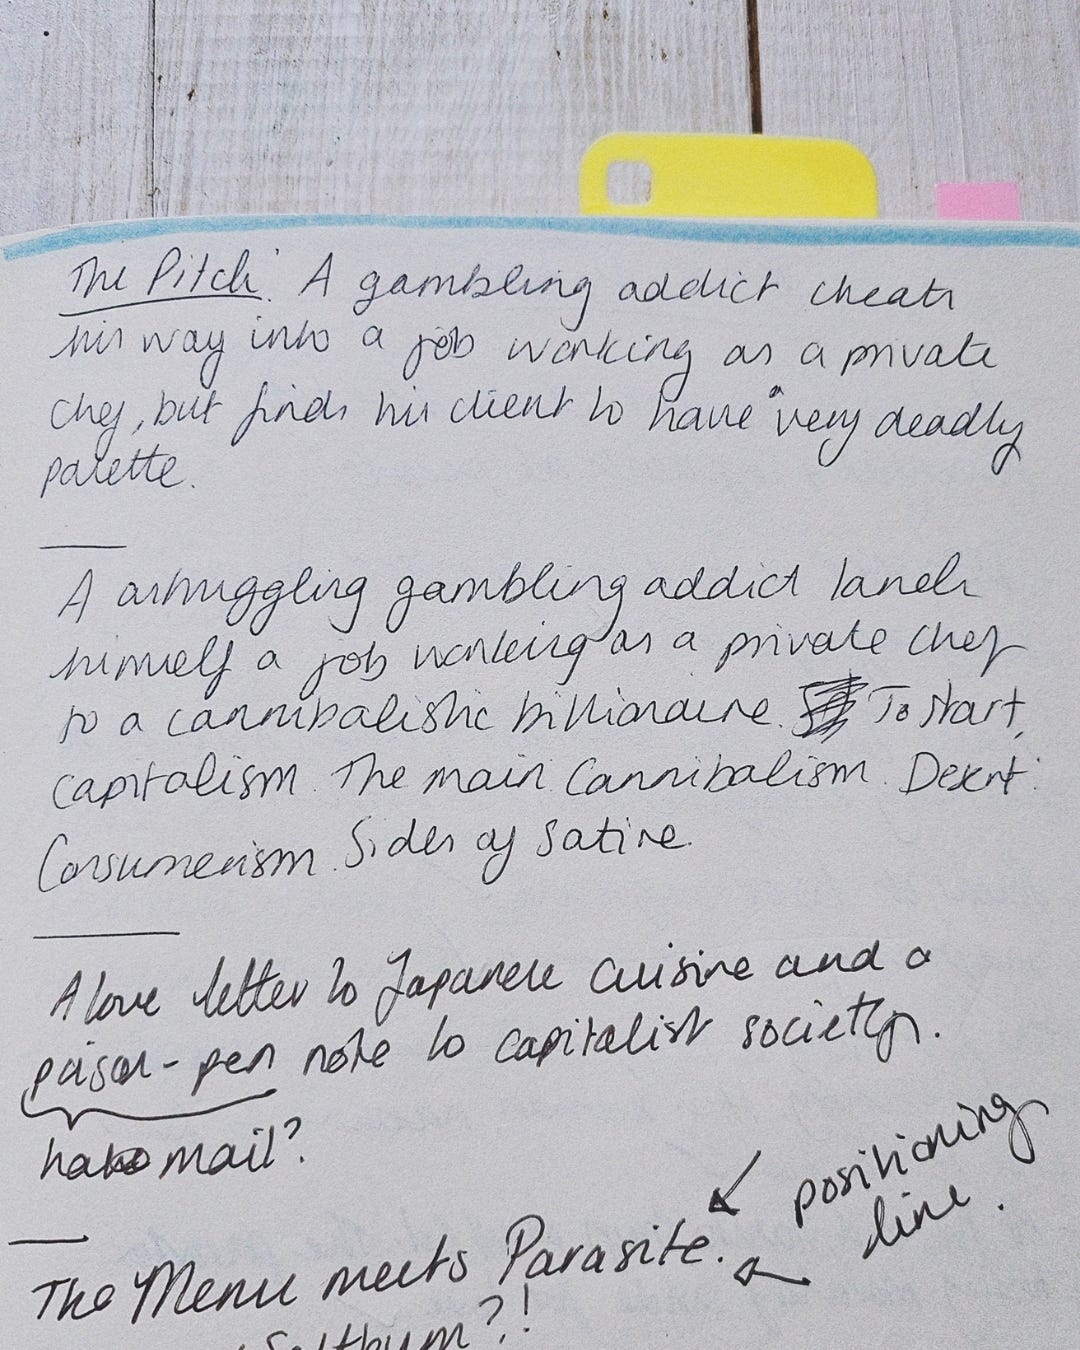 The Pitch: A gambling addict cheats
his way into a job working as a private
chef, but finds his client to have a very deadly
palette.
A struggling gambling addict lands
himself a job working as a private chef
to a cannibalistic billionaire. To start,
capitalism. The main. Cannibalism. Desert:
Consumerism. Sides of Satire.
A love letter to Japanese Cuisine and a
poison-pen note to capitalist society.
hate mail?
positioning
line.
The Menu meets Parasite.
Saltburn?!